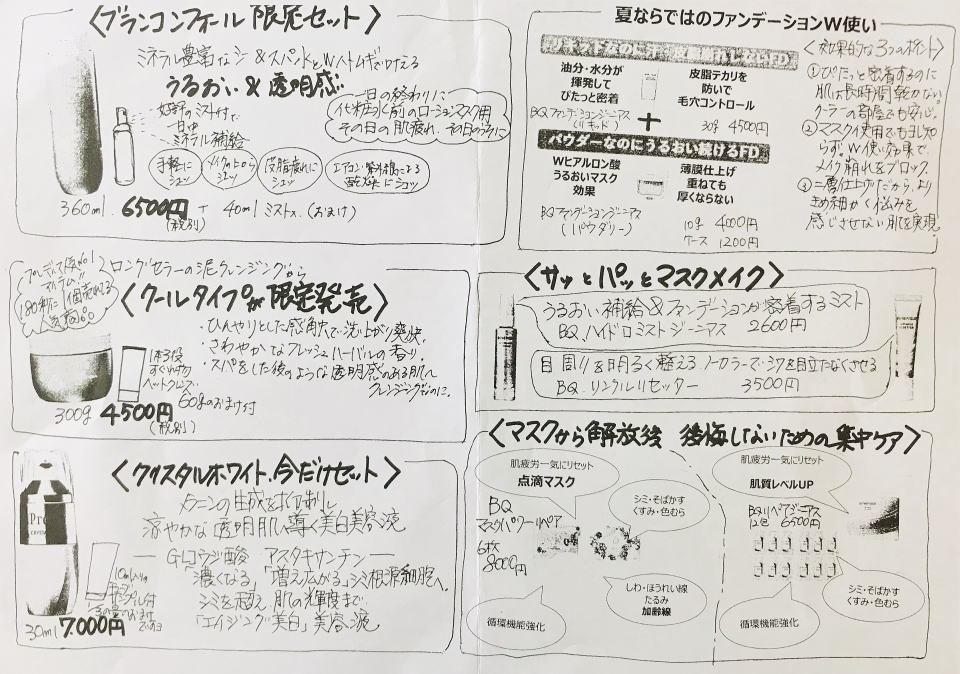 〈ブランコンフォール 限定セット〉
ミネラル豊富なシー&スパ水とWハトムギで叶える
うるおい&透明感
好評のミスト付で
一日中
ミネラル補給
一日の終わりに
化粧水前のローションマスク用
その日の肌疲れ、その日のうちに
手軽に
シュッ
メイクの上から
シュッ
皮脂疲れに
シュッ
エアコン・紫外線による
乾燥にシュッ
360ml 6500円 + 40mlミスト (おまけ)
(税別)
ロングセラーの泥クレンジングから
〈クールタイプが限定発売〉
180秒に1個売れてる
人気商品
・ひんやりとした感触で洗い上がり爽快
・さわやかなフレッシュハーバルの香り
・スパをした後のような透明感のある肌へ
クレンジングなのに。
1本3役
すぐれもの
60gのおまけ付
300g 4500円
(税別)
〈クリスタルホワイト.今だけセット〉
メラニンの生成を抑制し
涼やかな透明肌へ導く美白美容液
グリコウジ酸 アスタキサンチン
「濃くなる」「増え広がる」シミ根源細胞へ
シミを超え 肌の輝度まで
「エイジング美白」美容液
30ml 7000円
夏ならではのファンデーションW使い
リキッドなのに汗・皮脂崩れしないFD
油分・水分が
揮発して
ぴたっと密着
皮脂テカリを
防いで
毛穴コントロール
BQファンデーションジーニアス
(リキッド)
30g 4500円
+
パウダーなのにうるおい続けるFD
Wヒアルロン酸
うるおいマスク
効果
薄膜仕上げ
重ねても
厚くならない
BQファンデーションジーニアス
(パウダリー)
10g 4000円
ケース 1200円
〈効果的な3つのポイント〉
①ぴたっと密着するのに
肌は長時間乾かない。
クーラーの部屋でも安心。
②マスク使用でもヨレ知
らず。W使い効果で
メイク崩れをブロック。
③二層仕上げだから、より
きめ細かく悩みを
感じさせない肌を実現
〈サッとパッとマスクメイク〉
うるおい補給&ファンデーションが密着するミスト
BQ.ハイドロミストジーニアス 2600円
目周りを明るく整える ノーカラーで・シワを目立たなくさせる
BQ.リンクルリセッター 3500円
〈マスクから解放後 後悔しないための集中ケア〉
肌疲労一気にリセット
点滴マスク
BQ
マスクパワーリペア
6枚
8000円
シミ・そばかす
くすみ・色むら
しわ・ほうれい線
たるみ
加齢線
循環機能強化
肌疲労一気にリセット
肌質レベルUP
BQリペアジーニアス
12包 6500円
シミ・そばかす
くすみ・色むら
循環機能強化